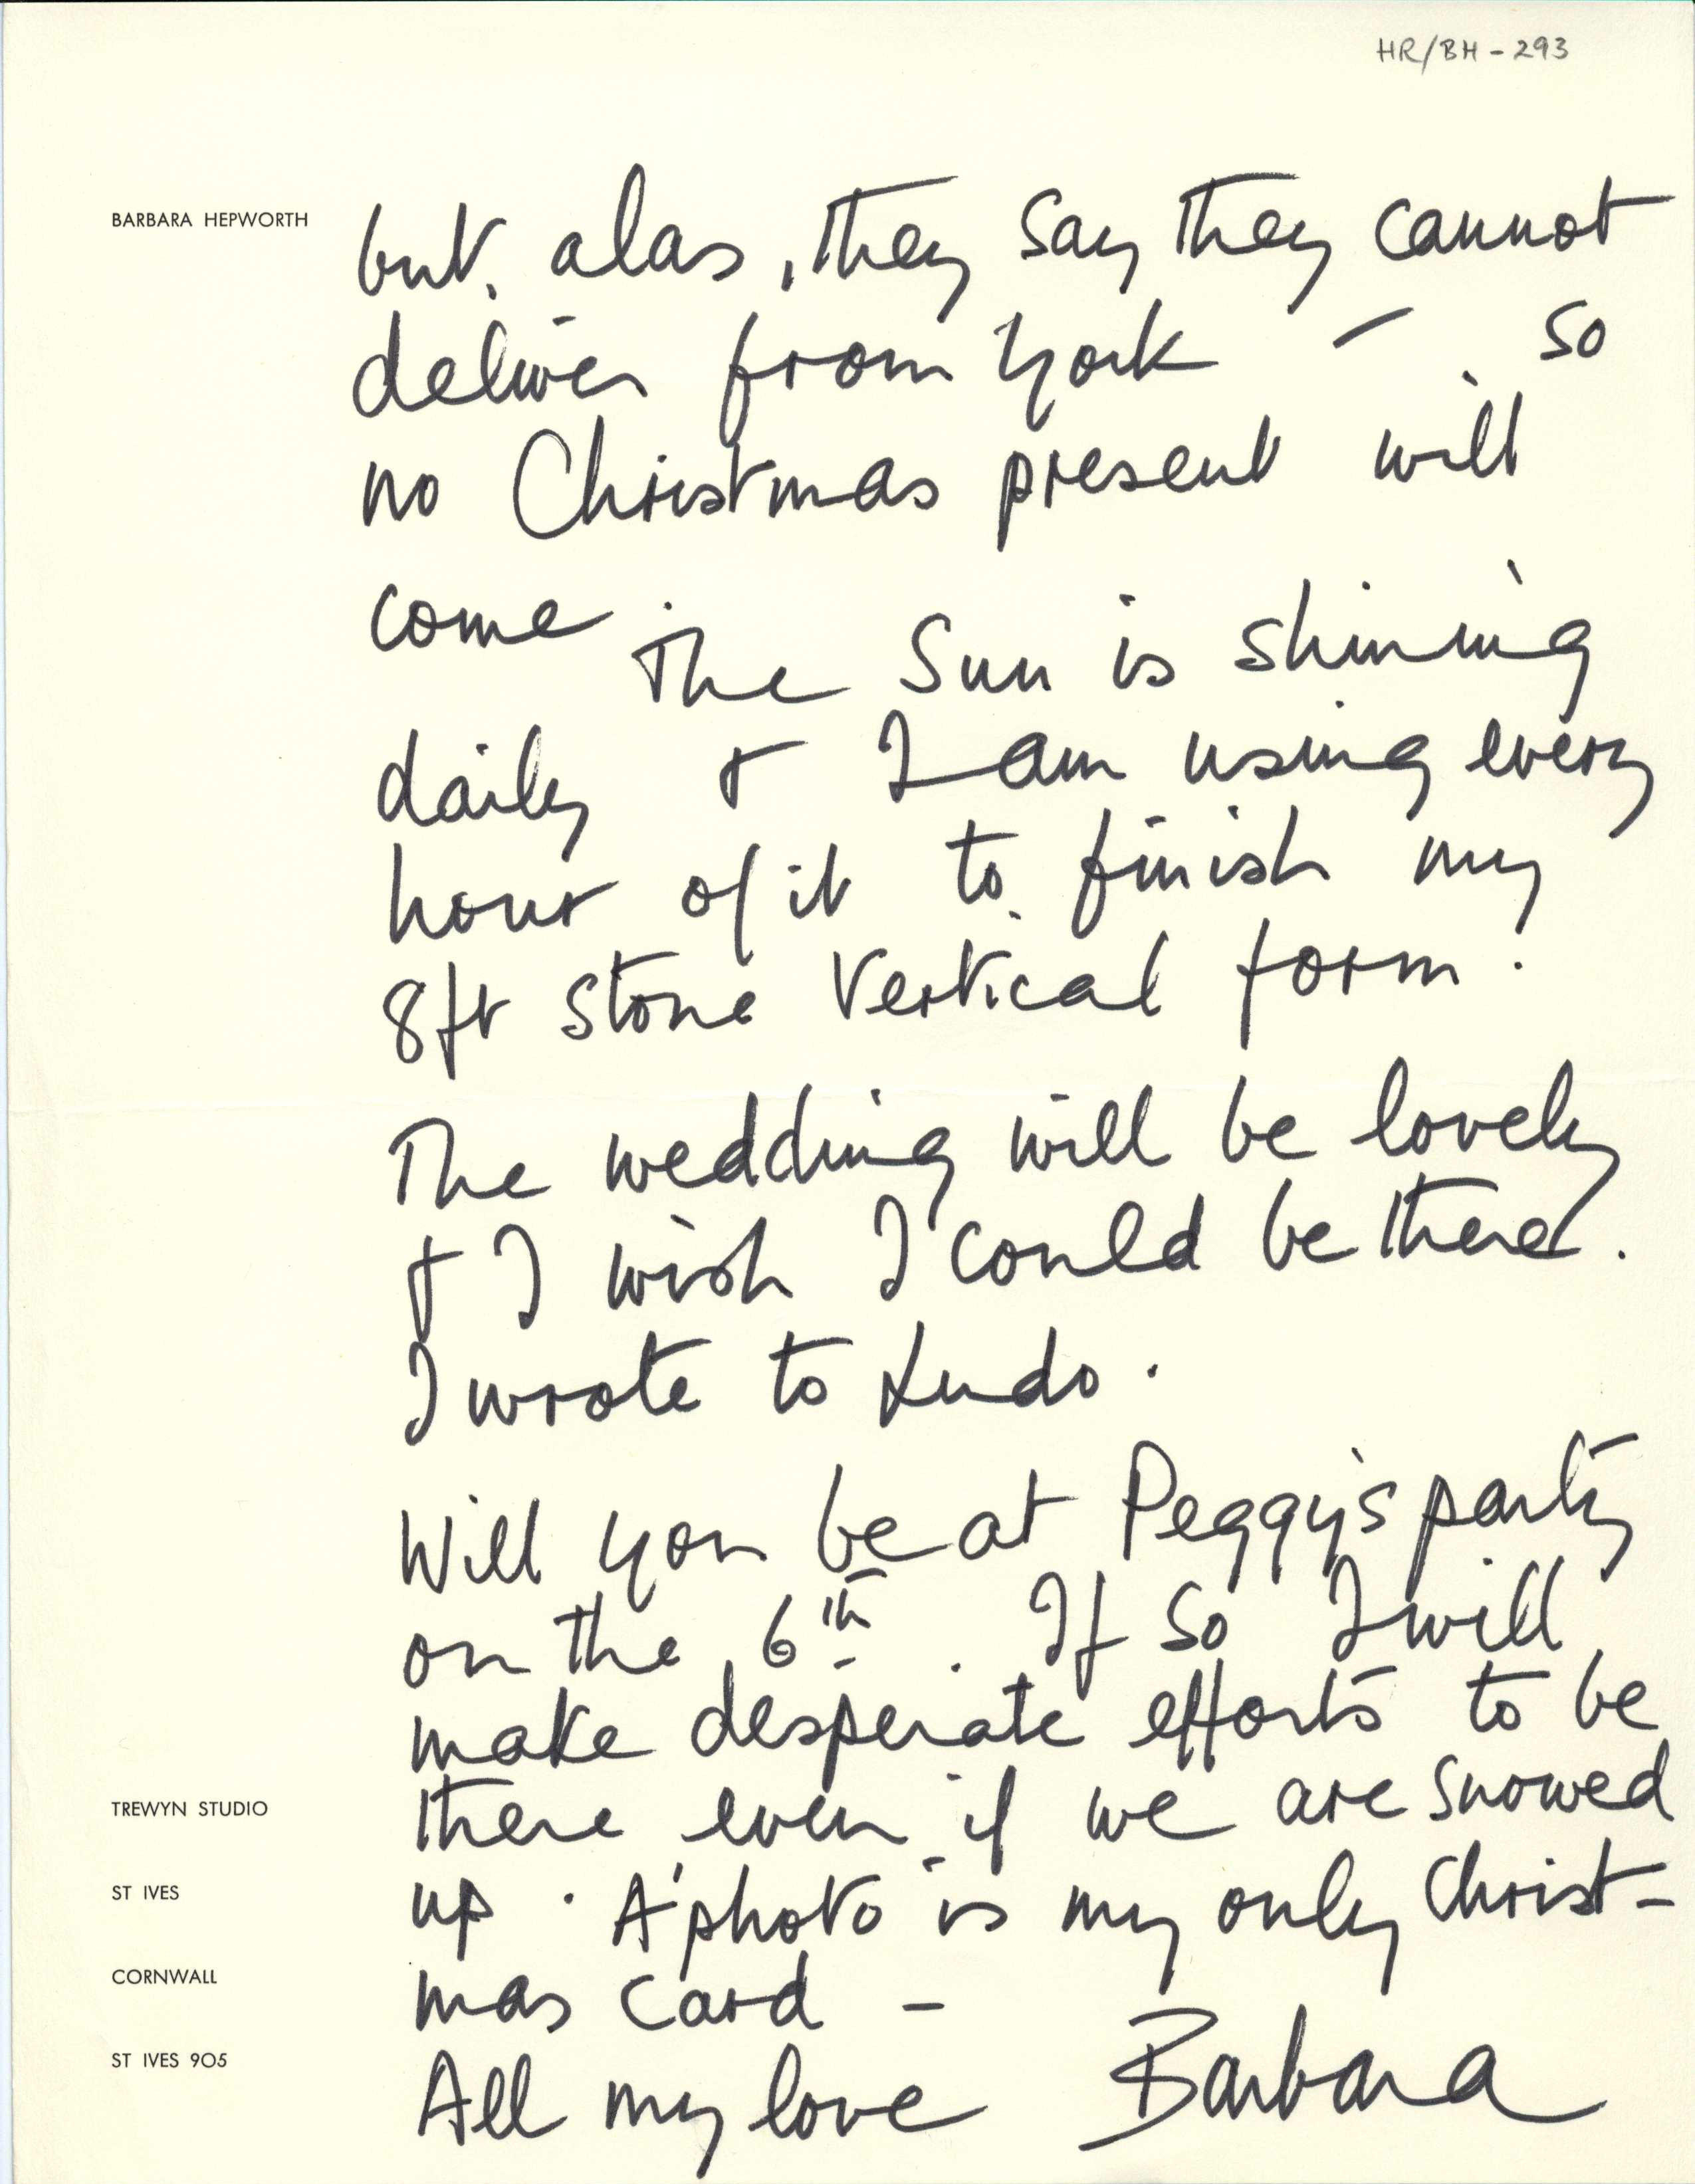 HR/BH - 293
BARBARA HEPWORTH
but, alas, they say they cannot
deliver from York — so
no Christmas present will
come.
The Sun is shining
daily & I am using every
hour of it to finish my
8ft stone Vertical form.
The wedding will be lovely
& I wish I could be there.
I wrote to Ludo.
Will you be at Peggy's party
on the 6th. If so I will
make desperate efforts to be
there even if we are snowed
up. A photo is my only Christ-
mas card —
All my love Barbara
TREWYN STUDIO
ST IVES
CORNWALL
ST IVES 905